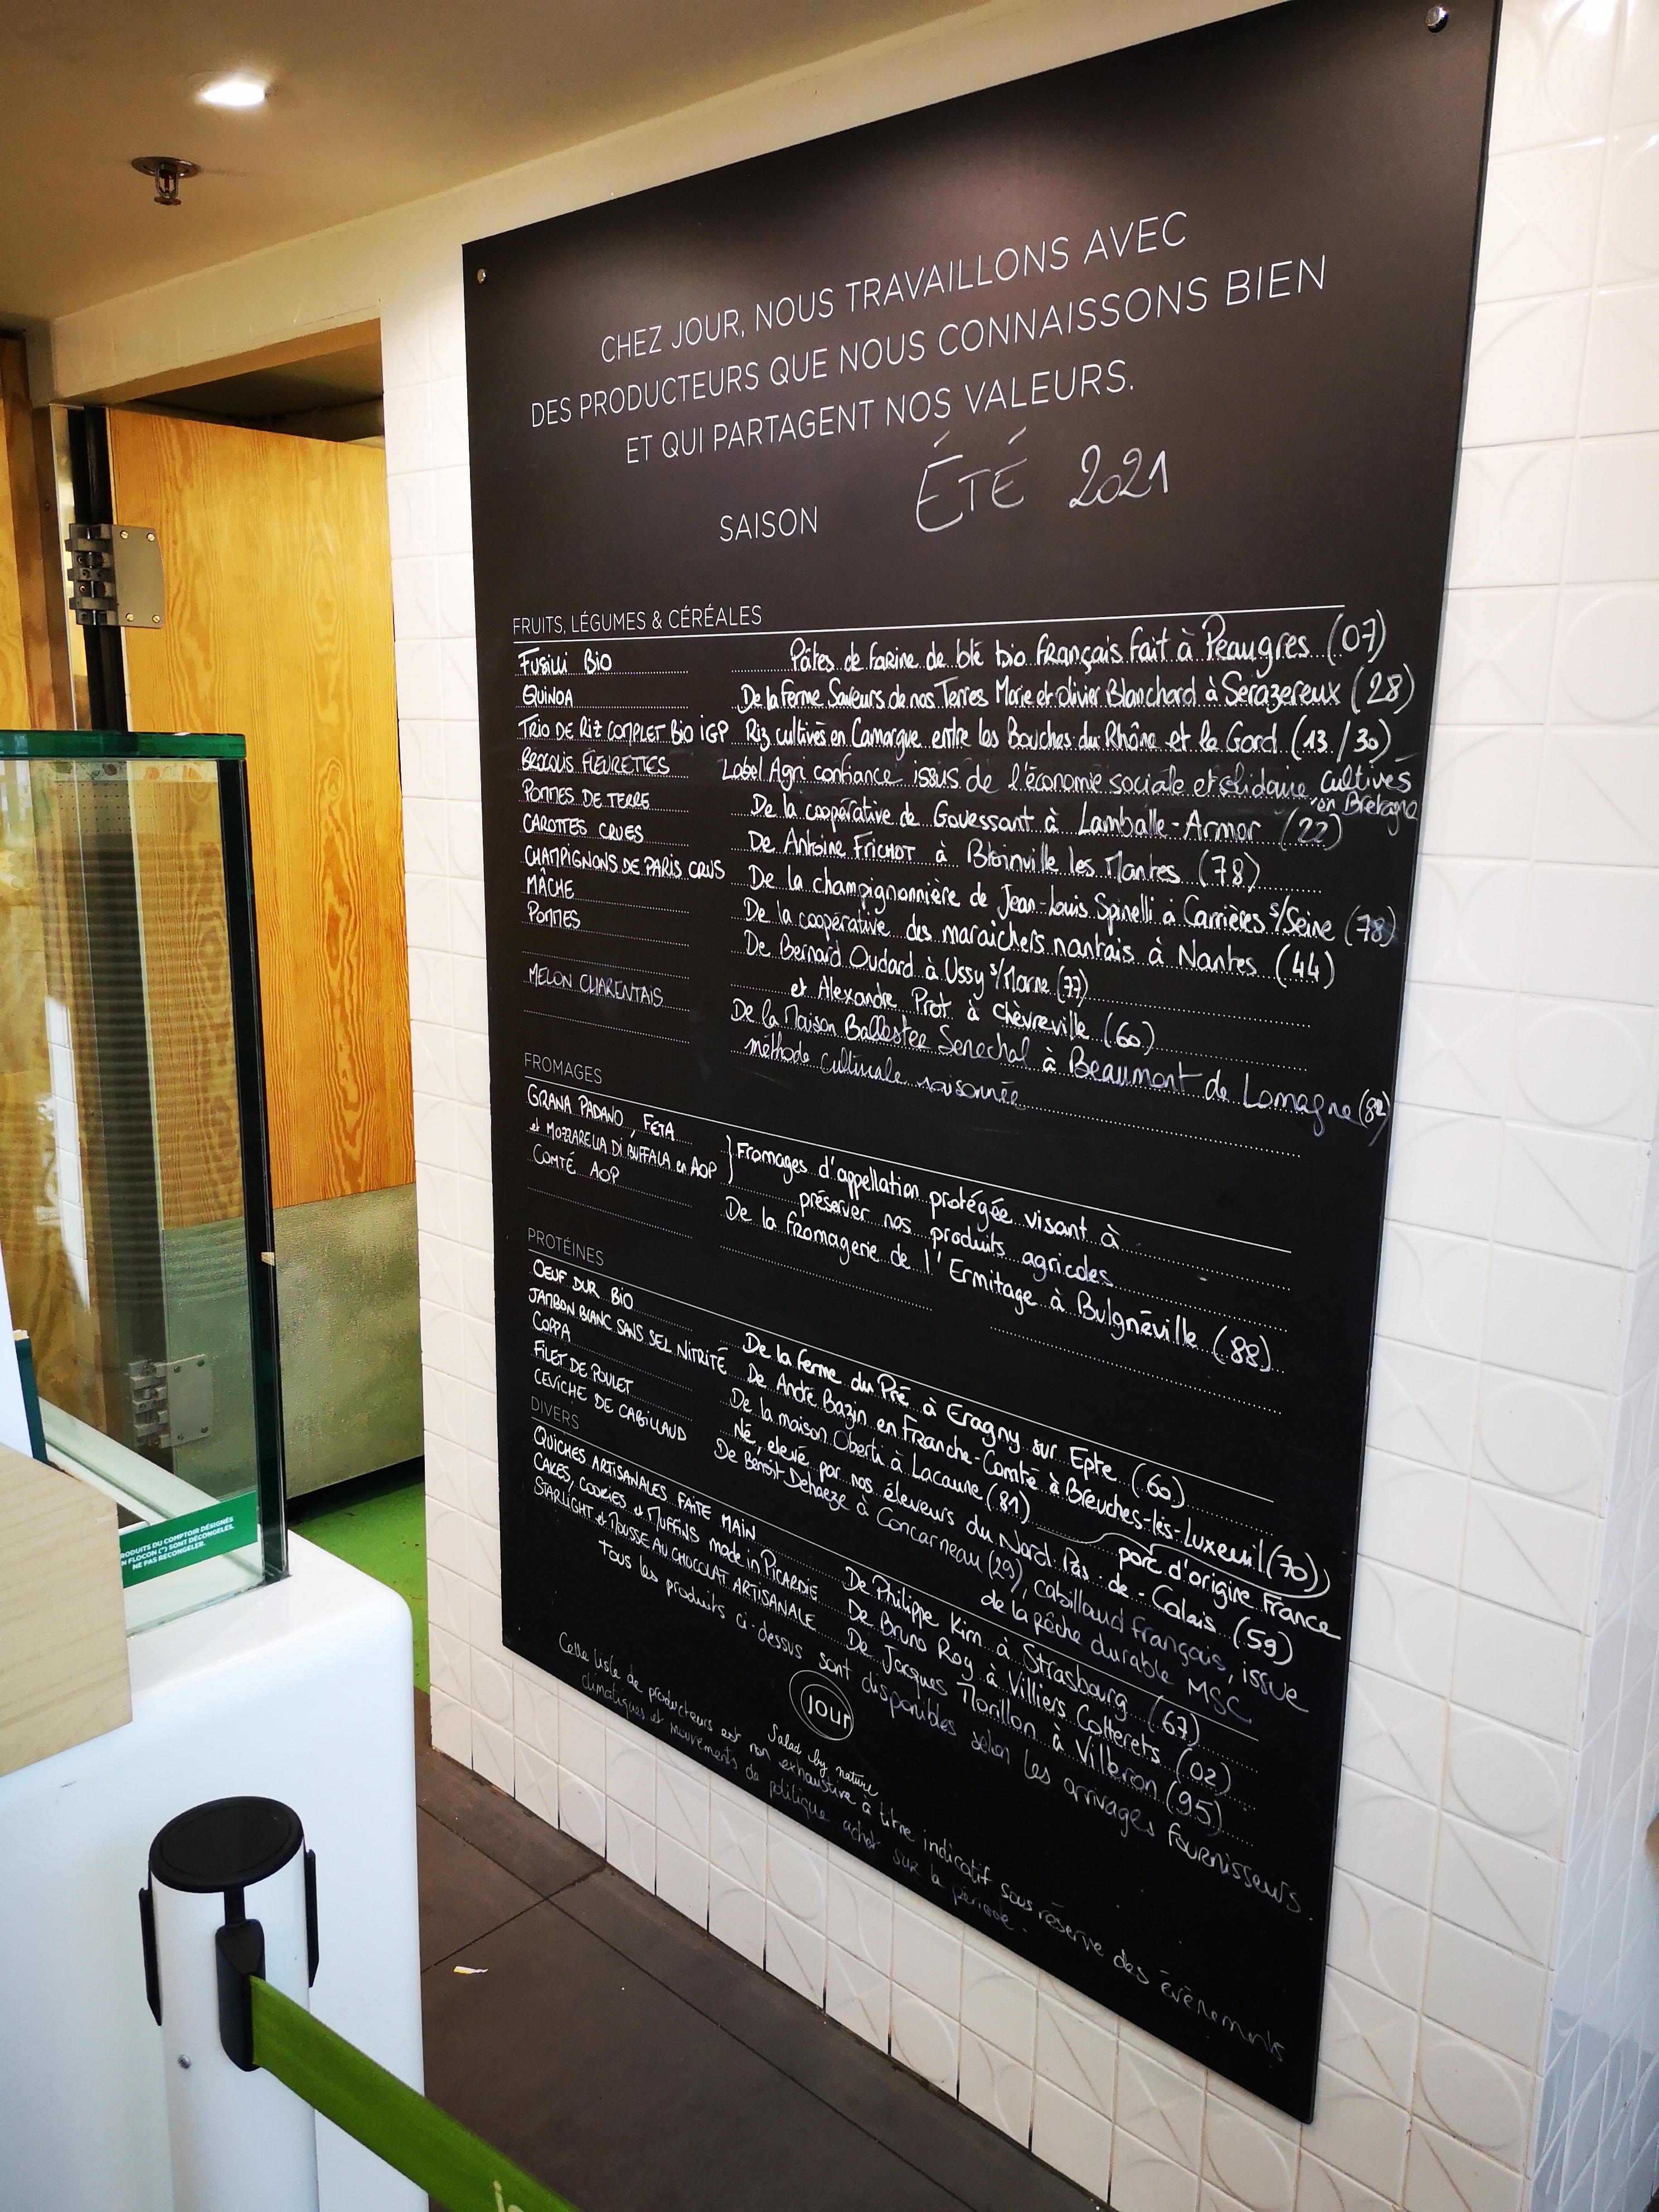 CHEZ JOUR, NOUS TRAVAILLONS AVEC
DES PRODUCTEURS QUE NOUS CONNAISSONS BIEN
ET QUI PARTAGENT NOS VALEURS.
SAISON ÉTÉ 2021
FRUITS, LÉGUMES & CÉRÉALES
FUSILLI BIO Pâtes de farine de blé bio français fait à Peaugres (07)
QUINOA De la ferme Saveurs de nos Terres Marie et Olivier Blanchard à Serazereux (28)
TRIO DE RIZ COMPLET BIO IGP Riz cultivés en Camargue entre les Bouches du Rhône et le Gard (13/30)
BROCOLIS FLEURETTES Label Agri confiance issus de l'économie sociale et solidaire cultivés
en Bretagne
POMMES DE TERRE De la coopérative de Gouessant à Lamballe-Armor (22)
CAROTTES CRUES De Antoine FRICHOT à Bionville les Mantes (78)
CHAMPIGNONS DE PARIS CRUS De la champignonnière de Jean-Louis Spinelli à Carrières s/Seine (78)
MÂCHE De la coopérative des maraichers nantais à Nantes (44)
POMMES De Bernard Oudard à Ussy s/Marne (77)
et Alexandre Prot à Chèvreville (60)
MELON CHARENTAIS De la Maison Ballestee Senechal à Beaumont de Lomagne (82)
méthode culturale raisonnée
FROMAGES
GRANA PADANO, FETA
et MOZZARELLA DI BUFFALA en AOP } Fromages d'appellation protégée visant à
préserver nos produits agricoles
COMTÉ AOP De la fromagerie de l'Ermitage à Bulgnéville (88)
PROTÉINES
OEUF DUR BIO De la ferme du Pré à Eragny sur Epte (60)
JAMBON BLANC SANS SEL NITRITÉ De André Bazin en Franche-Comté à Breuches-lès-Luxeuil (70)
COPPA De la maison Oberti à Lacaune (81) porc d'origine France
FILET DE POULET Né, elevé par nos éleveurs du Nord Pas-de-Calais (59)
CEVICHE DE CABILLAUD De Benoît Dehaeze à Concarneau (29), cabillaud français, issue
de la pêche durable MSC
DIVERS
QUICHES ARTISANALES FAITE MAIN De Philippe Kim à Strasbourg (67)
CAKES, COOKIES et MUFFINS made in PICARDIE De Bruno Roy à Villiers Cotterets (02)
STARLIGHT et MOUSSE AU CHOCOLAT ARTISANALE De Jacques Morillon à Villeron (95)
Tous les produits ci-dessus sont disponibles selon les arrivages fournisseurs.
JOUR
Salad by nature
Cette liste de producteurs est non exhaustive à titre indicatif sous réserve des évènements
climatiques et mouvements de politique achat sur la période.
PRODUITS DU COMPTOIR DÉSIGNÉS
FLOCON (*) SONT DÉCONGELÉS.
NE PAS RECONGELER.